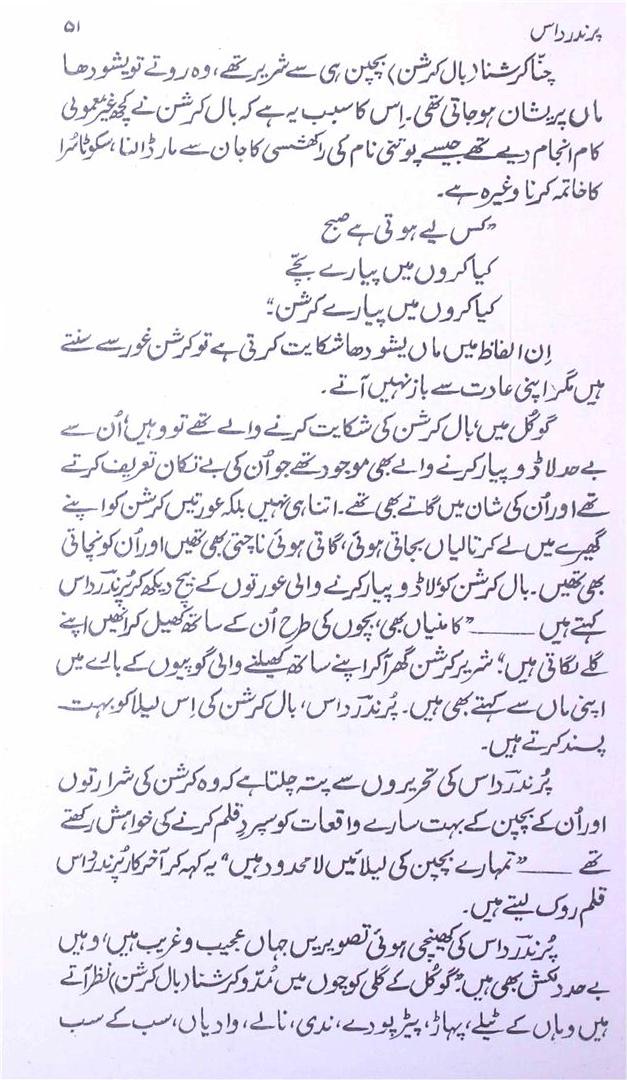 پرندر داس ۵۱
چِنّا کرشنا (بال کرشن) بچپن ہی سے شریر تھے، وہ روتے تو یشودھا
ماں پریشان ہو جاتی تھی۔ اِس کا سبب یہ ہے کہ بال کرشن نے کچھ غیر معمولی
کام انجام دیے تھے جیسے پوتنی نام کی راکھشسی کا جان سے مار ڈالنا،
کا خاتمہ کرنا وغیرہ ہے۔
”کس لیے ہوتی ہے صبح
کیا کروں میں پیارے بچّے
کیا کروں میں پیارے کرشن“
اِن الفاظ میں ماں یشودھا شکایت کرتی ہے تو کرشن غور سے سنتے
ہیں مگر اپنی عادت سے باز نہیں آتے۔
گوکُل میں، بال کرشن کی شکایت کرنے والے تھے تو وہیں اُن سے
بے حد لاڈ و پیار کرنے والے بھی موجود تھے جو اُن کی بے تکان تعریف کرتے
تھے اور اُن کی شان میں گاتے بھی تھے۔ اتنا ہی نہیں بلکہ عورتیں کرشن کو اپنے
گھیرے میں لے کر تالیاں بجاتی ہوئی، گاتی ہوئی ناچتی بھی تھیں اور اُن کو نچاتی
بھی تھیں۔ بال کرشن کو لاڈ و پیار کرنے والی عورتوں کے بیچ دیکھ کر پُرندر داس
کہتے ہیں ——— ”کامنیاں بھی، بچوں کی طرح اُن کے ساتھ کھیل کر انھیں اپنے
گلے لگاتی ہیں“ شریر کرشن گھر آ کر اپنے ساتھ کھیلنے والی گوپیوں کے بارے میں
اپنی ماں سے کہتے بھی ہیں۔ پُرندر داس، بال کرشن کی اِس لیلا کو بہت
پسند کرتے ہیں۔
پُرندر داس کی تحریروں سے پتہ چلتا ہے کہ وہ کرشن کی شرارتوں
اور اُن کے بچپن کے بہت سارے واقعات کو سپردِ قلم کرنے کی خواہش رکھتے
تھے ——— ”تمہارے بچپن کی لیلائیں لا محدود ہیں“ یہ کہہ کر آخر کار پُرندر داس
قلم روک لیتے ہیں۔
پُرندر داس کی کھینچی ہوئی تصویریں جہاں عجیب و غریب ہیں، وہیں
بے حد دلکش بھی ہیں: ”گوکُل کے گلی کوچوں میں مُدّو کرشنا (بال کرشن) نظر آتے
ہیں وہاں کے ٹیلے، پہاڑ، پیڑ پودے، ندی، نالے، وادیاں، سب کے سب